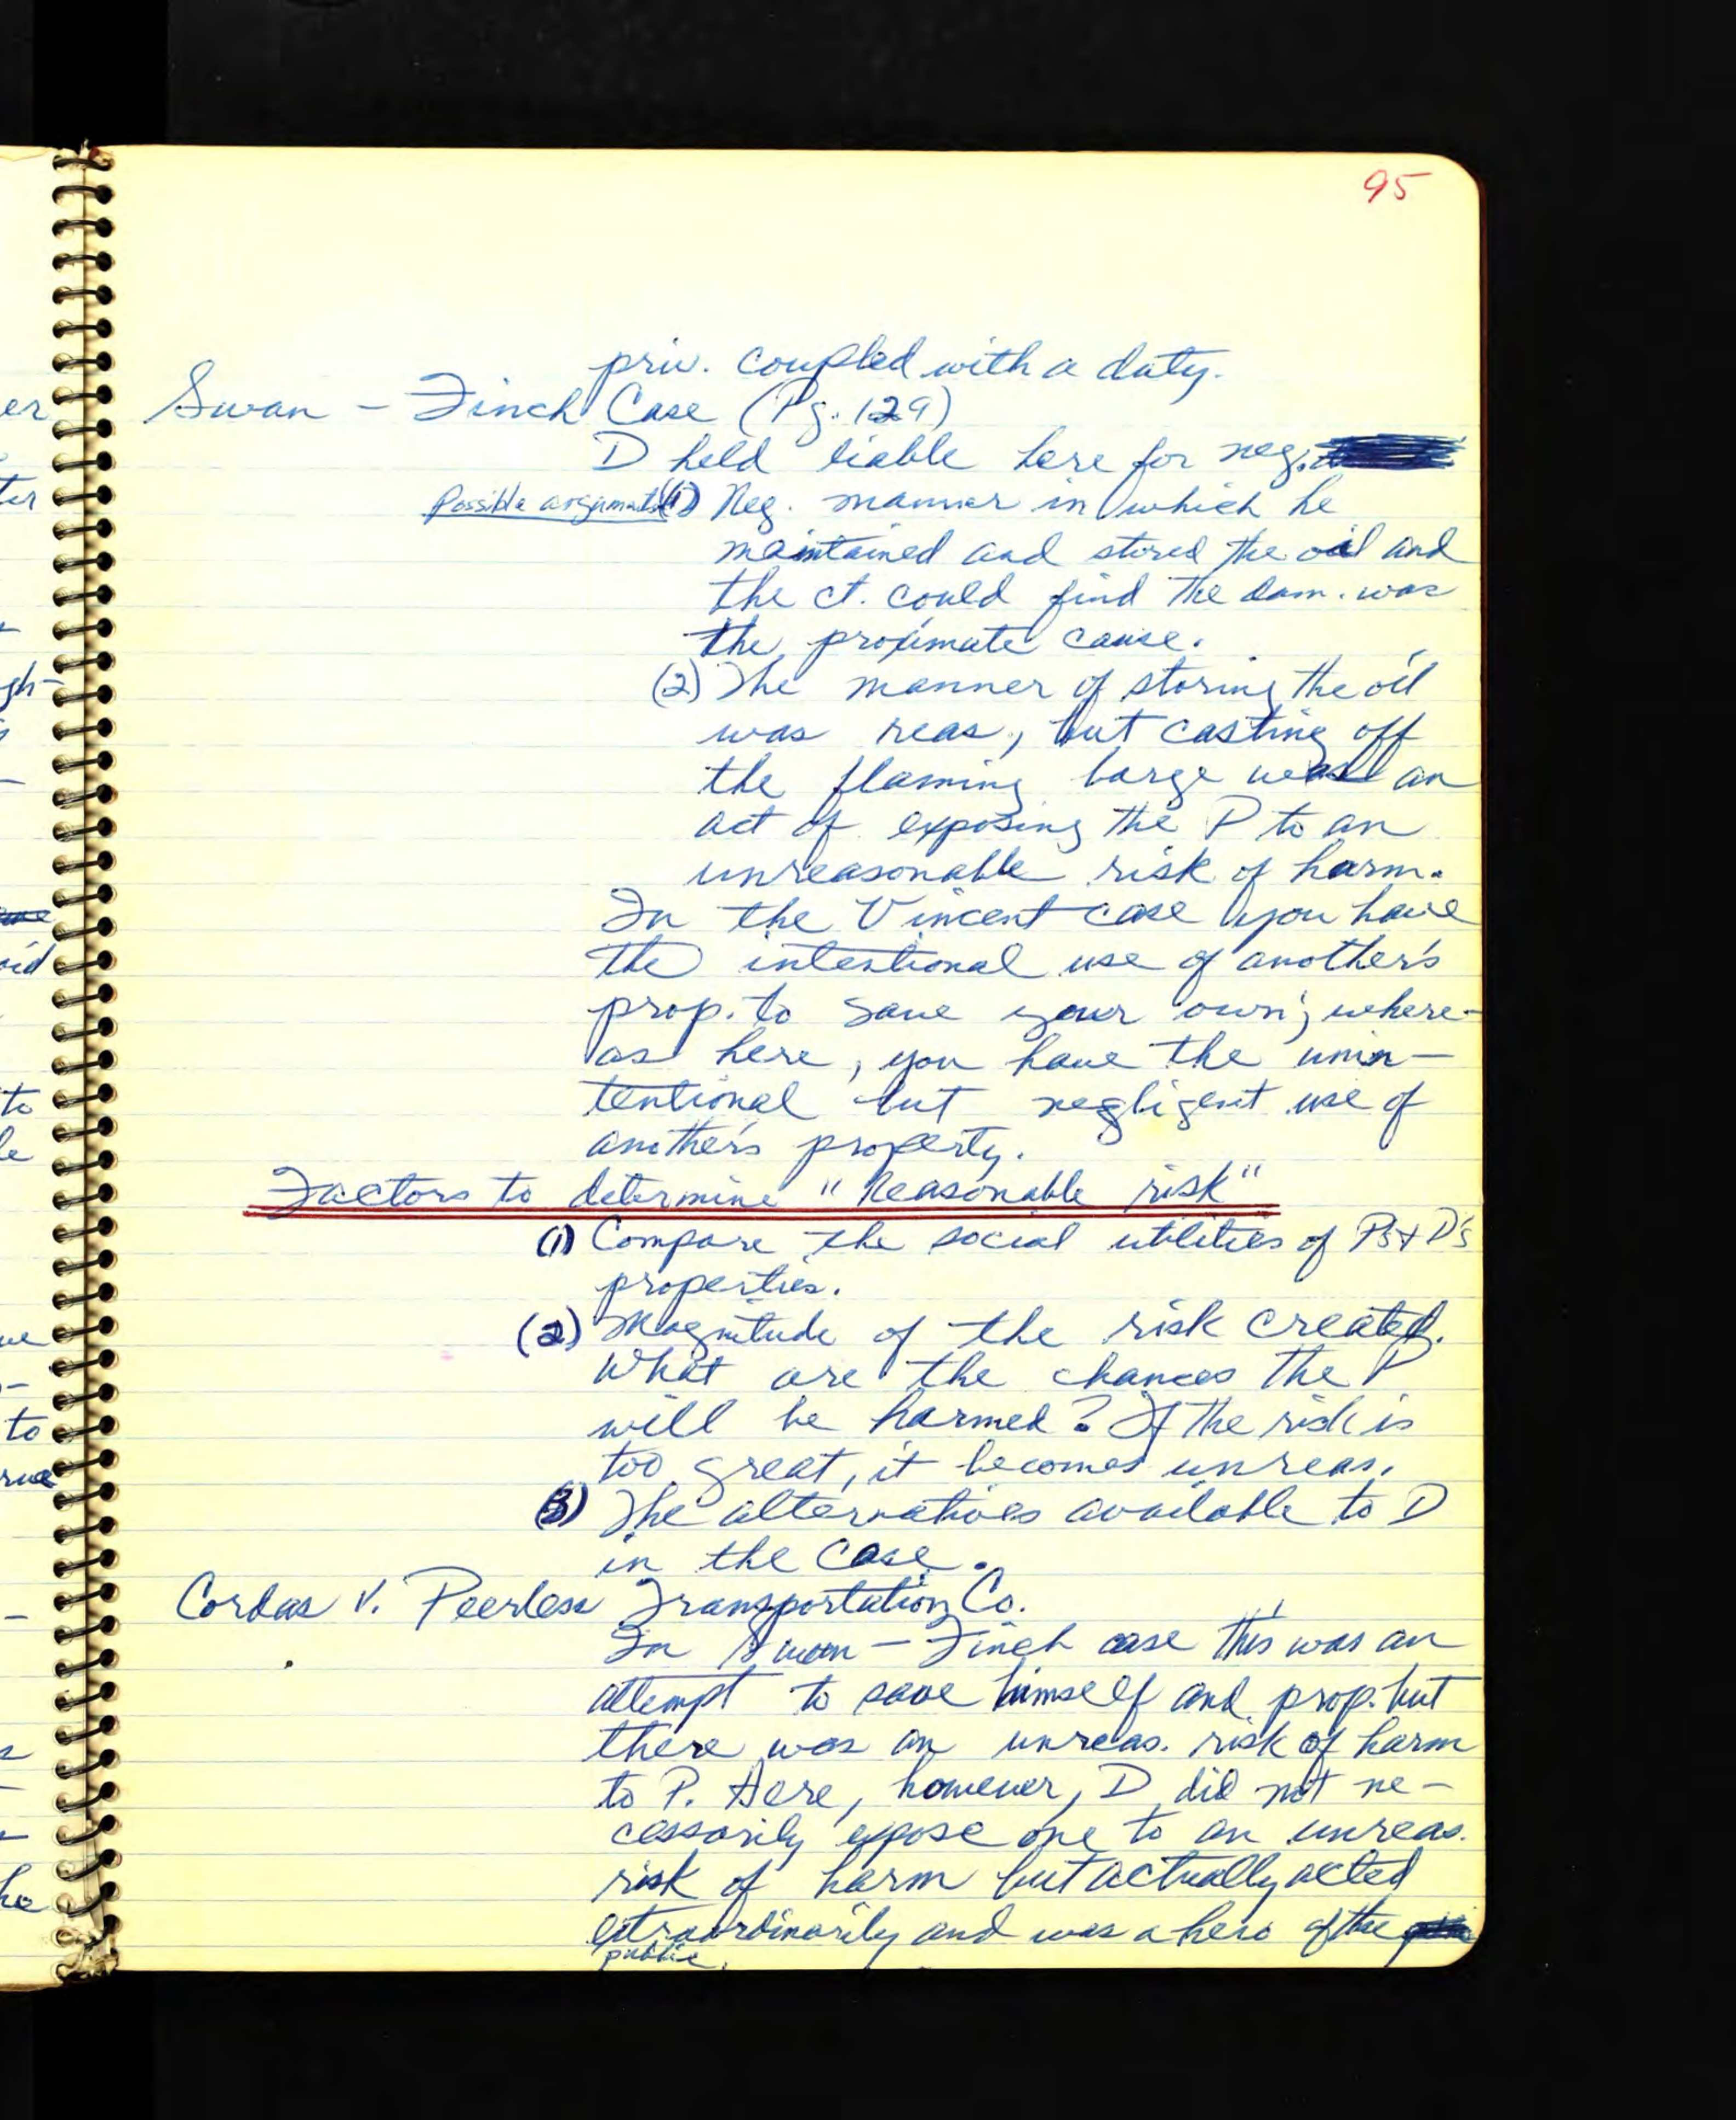 95
priv. coupled with a duty.
Swan - Finch Case (Pg. 129)
D held liable here for neg.
Possible arguments (1) Neg. manner in which he
maintained and stored the oil and
the ct. could find the dam. was
the proximate cause.
(2) The manner of storing the oil
was reas., but casting off
the flaming barge was an
act of exposing the P to an
unreasonable risk of harm.
In the Vincent case you have
the intentional use of another's
prop. to save your own; where-
as here, you have the unin-
tentional but negligent use of
another's property.
Factors to determine "Reasonable risk"
(1) Compare the social utilities of P's + D's
properties.
(2) Magnitude of the risk created.
What are the chances the P
will be harmed? If the risk is
too great, it becomes unreas.
(3) The alternatives available to D
in the case.
Cordas v. Peerless Transportation Co.
In Swan - Finch case this was an
attempt to save himself and prop. but
there was an unreas. risk of harm
to P. Here, however, D did not ne-
cessarily expose one to an unreas.
risk of harm but actually acted
extraordinarily and was a hero of the
public.
er
ter
gh-
oid
to
le
ue
to
rue
he